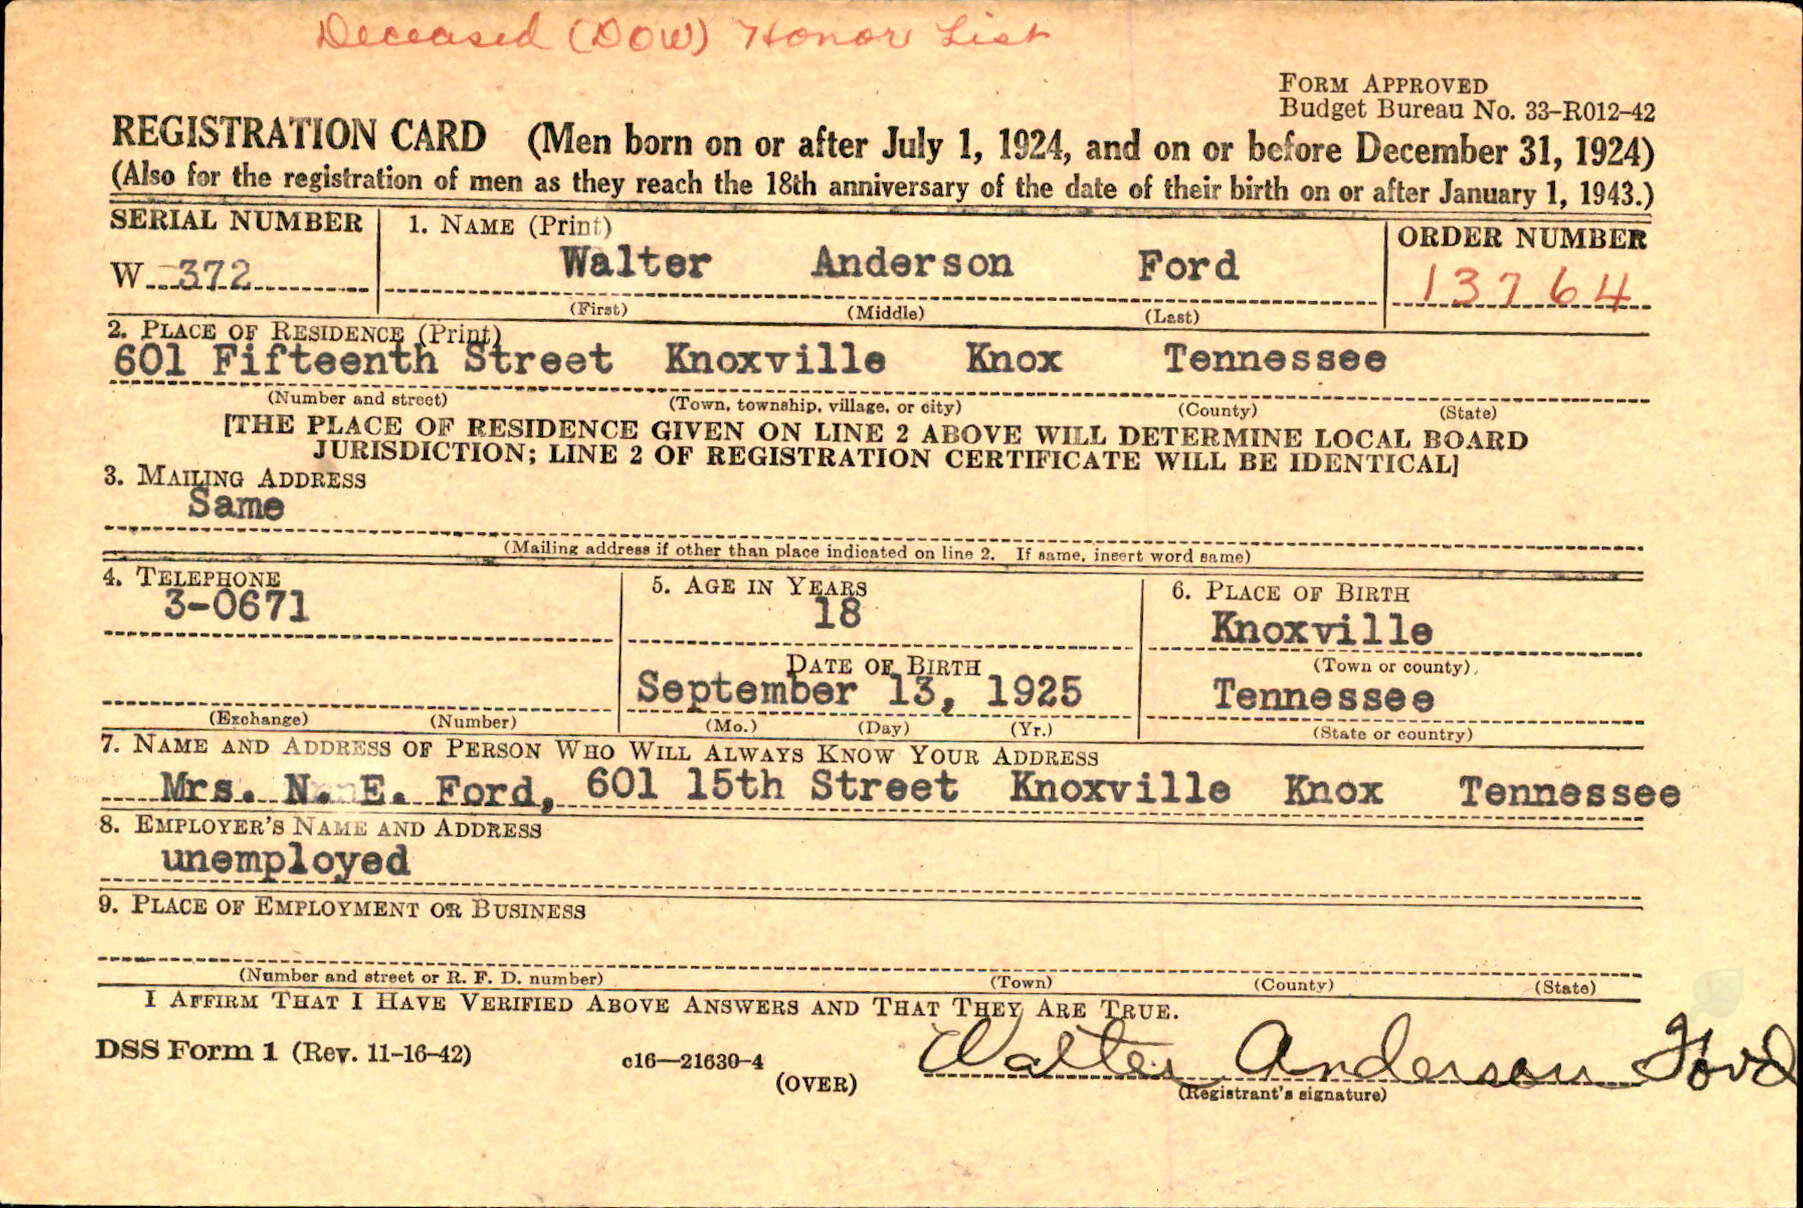 Deceased (DOW) Honor List
FORM APPROVED
Budget Bureau No. 33-R012-42
REGISTRATION CARD (Men born on or after July 1, 1924, and on or before December 31, 1924)
(Also for the registration of men as they reach the 18th anniversary of the date of their birth on or after January 1, 1943.)
SERIAL NUMBER
1. NAME (Print)
ORDER NUMBER
W 372
Walter Anderson Ford
13764
(First) (Middle) (Last)
2. PLACE OF RESIDENCE (Print)
601 Fifteenth Street Knoxville Knox Tennessee
(Number and street) (Town, township, village, or city) (County) (State)
[THE PLACE OF RESIDENCE GIVEN ON LINE 2 ABOVE WILL DETERMINE LOCAL BOARD
JURISDICTION; LINE 2 OF REGISTRATION CERTIFICATE WILL BE IDENTICAL]
3. MAILING ADDRESS
Same
(Mailing address if other than place indicated on line 2. If same, insert word same)
4. TELEPHONE
3-0671
(Exchange) (Number)
5. AGE IN YEARS
18
DATE OF BIRTH
September 13, 1925
(Mo.) (Day) (Yr.)
6. PLACE OF BIRTH
Knoxville
(Town or county)
Tennessee
(State or country)
7. NAME AND ADDRESS OF PERSON WHO WILL ALWAYS KNOW YOUR ADDRESS
Mrs. N. E. Ford, 601 15th Street Knoxville Knox Tennessee
8. EMPLOYER'S NAME AND ADDRESS
unemployed
9. PLACE OF EMPLOYMENT OR BUSINESS
(Number and street or R. F. D. number) (Town) (County) (State)
I AFFIRM THAT I HAVE VERIFIED ABOVE ANSWERS AND THAT THEY ARE TRUE.
DSS Form 1 (Rev. 11-16-42) c16—21630-4
(OVER)
Walter Anderson Ford
(Registrant's signature)